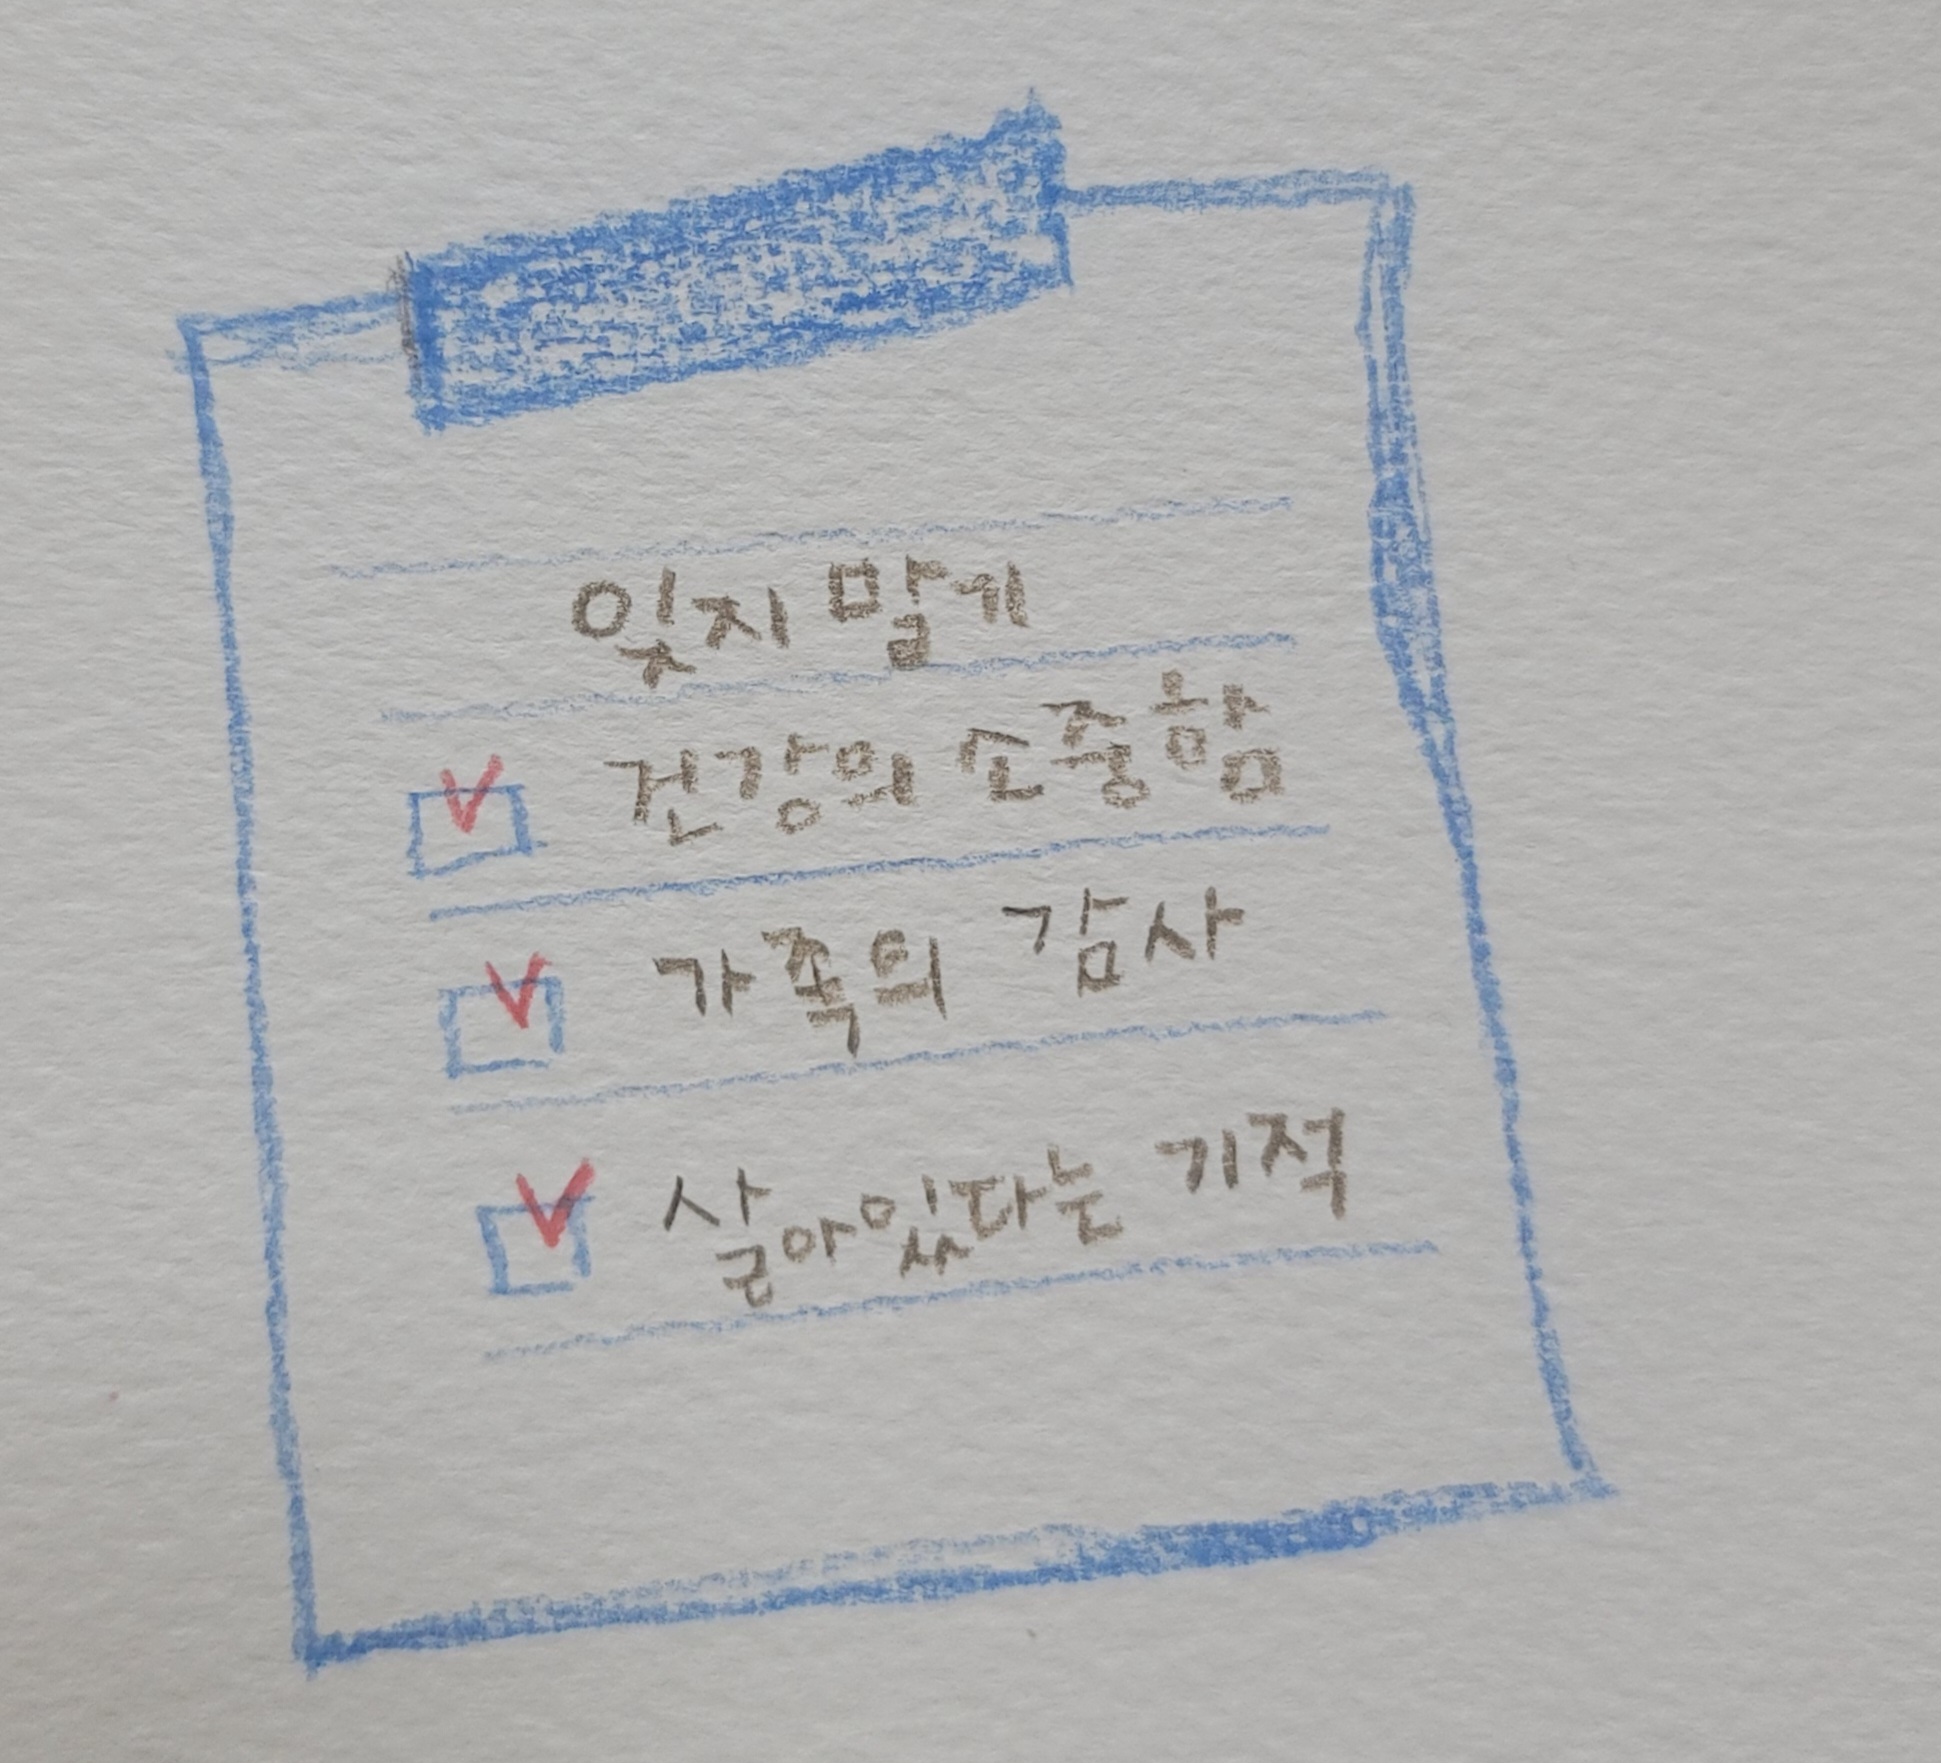 잊지 말게
건강의 소중함
가족의 감사
살아있다는 기적